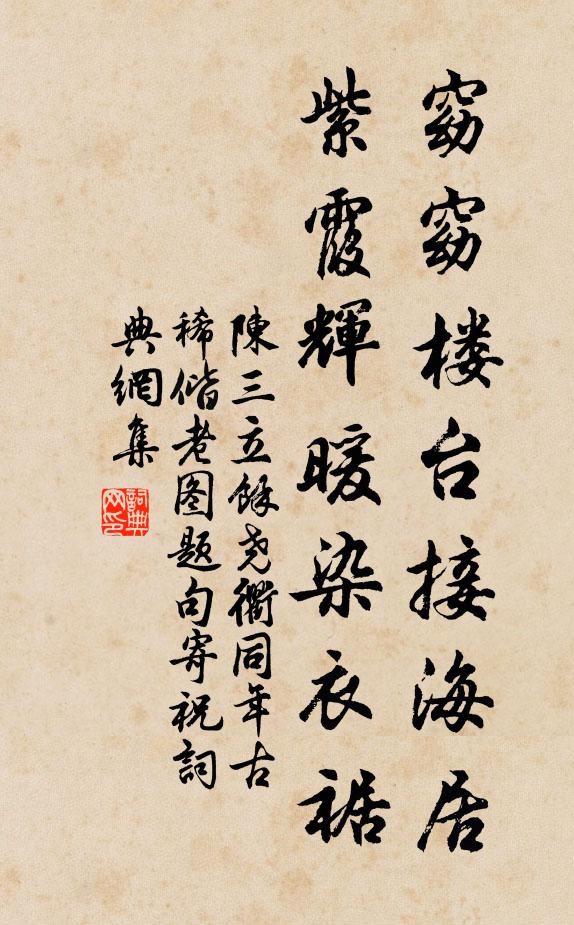 窈窈楼台接海居
紫霞輝暖染衣裾
陳三立餘尧衢同年古
稀偕老图题句寄祝詞
典網集
詞典
网印